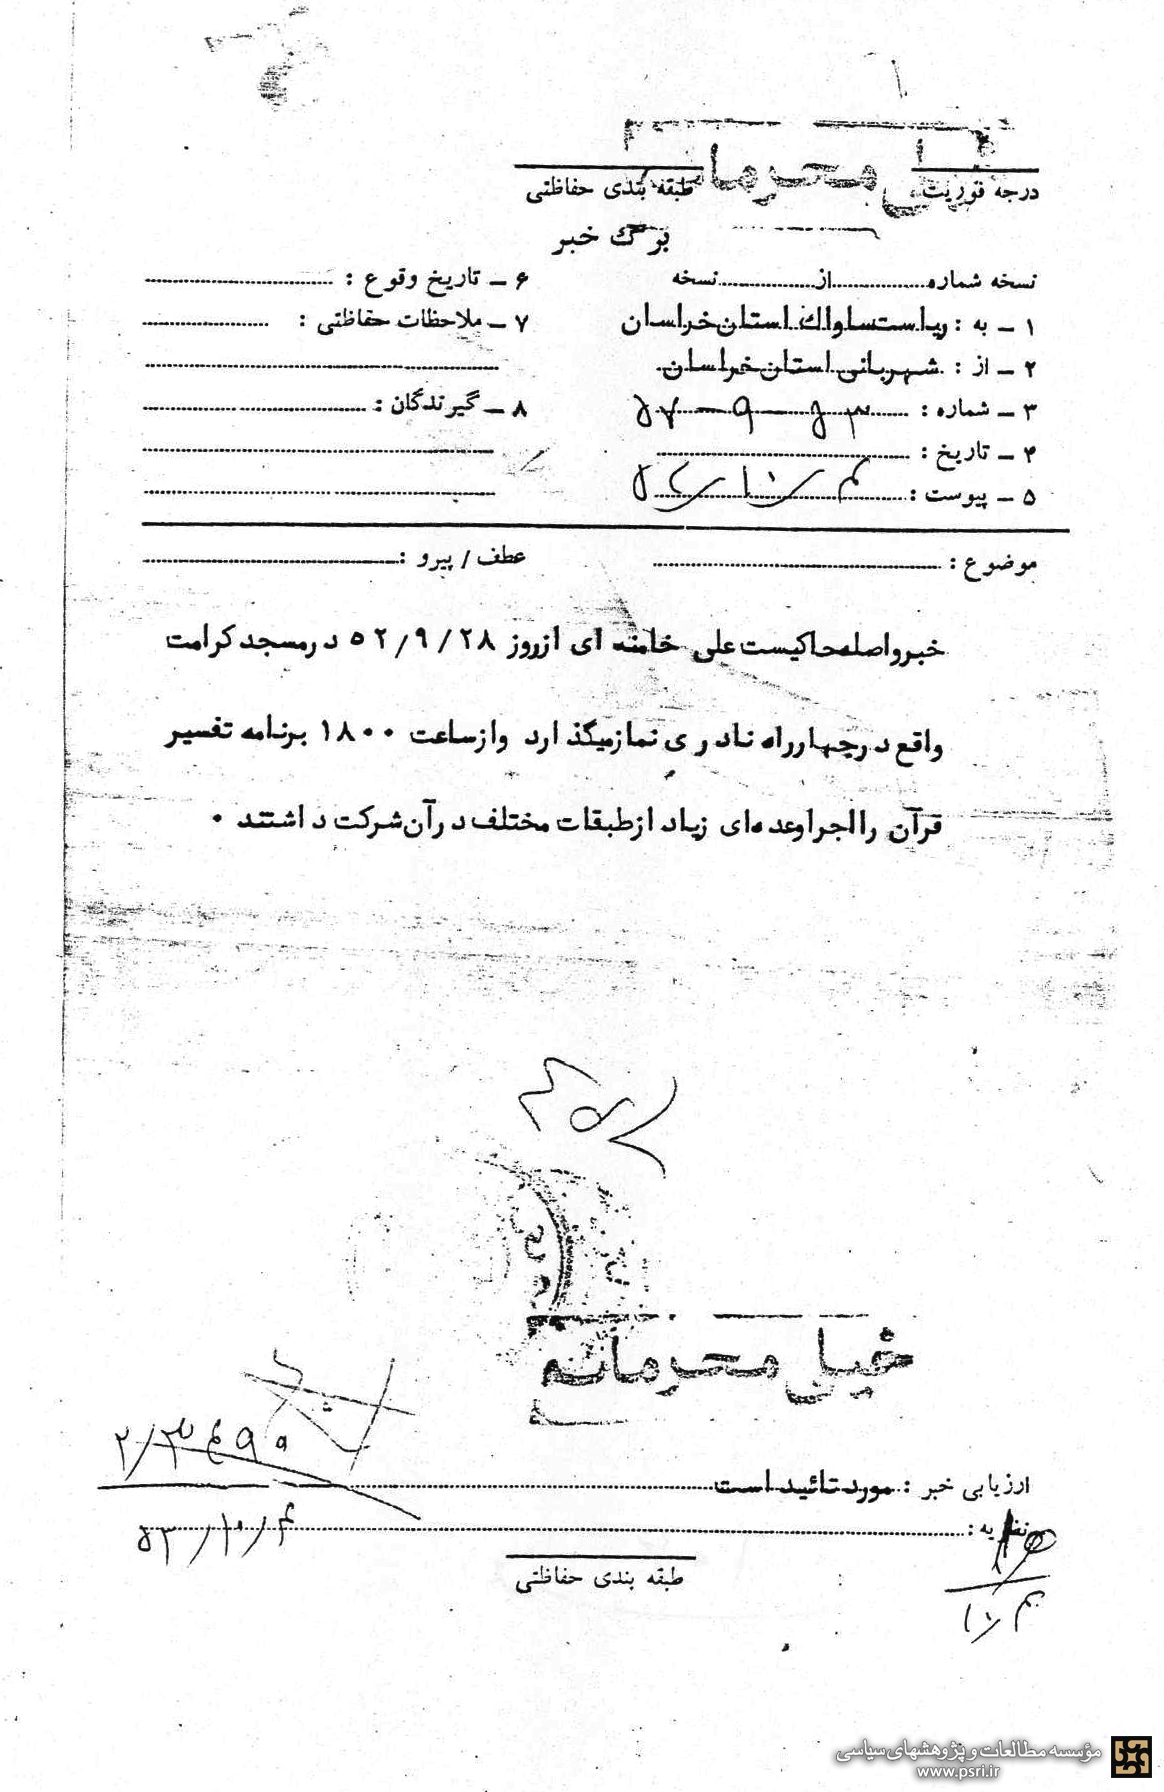 خیلی محرمانه
درجه فوریت
طبقه بندی حفاظتی
برگ خبر
نسخه شماره..............از..............نسخه
۱ – به : ریاست ساواک استان خراسان
۲ – از : شهربانی استان خراسان
۳ – شماره :
۴ – تاریخ :
۵ – پیوست :
۶ – تاریخ وقوع :
۷ – ملاحظات حفاظتی :
۸ – گیرندگان :
موضوع :
عطف / پیرو :
خبرواصله حاکیست علی خامنه ای ازروز ۵۲/۹/۲۸ درمسجد کرامت
واقع درچهارراه نادری نمازمیگذارد وازساعت ۱۸۰۰ برنامه تفسیر
قرآن را اجرا وعده ای زیاد ازطبقات مختلف درآن شرکت داشتند ۰
خیلی محرمانه
ارزیابی خبر : مورد تائید است
نظریه :
طبقه بندی حفاظتی
مؤسسه مطالعات و پژوهشهای سیاسی
www.psri.ir